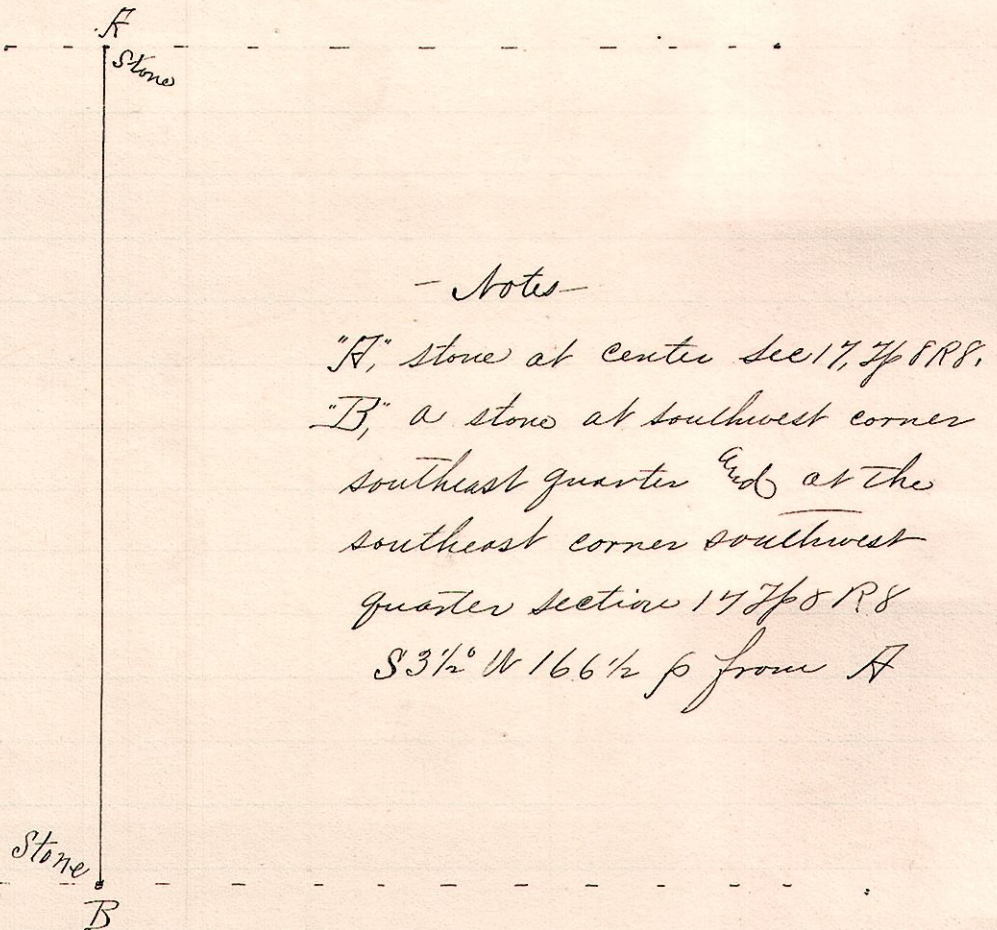 A
Stone
- Notes -
"A," stone at center sec 17, Tp 8 R 8.
"B," a stone at southwest corner
southeast quarter and at the
southeast corner southwest
quarter section 17 Tp 8 R 8
S 3½° W 166½ p from A
Stone
B